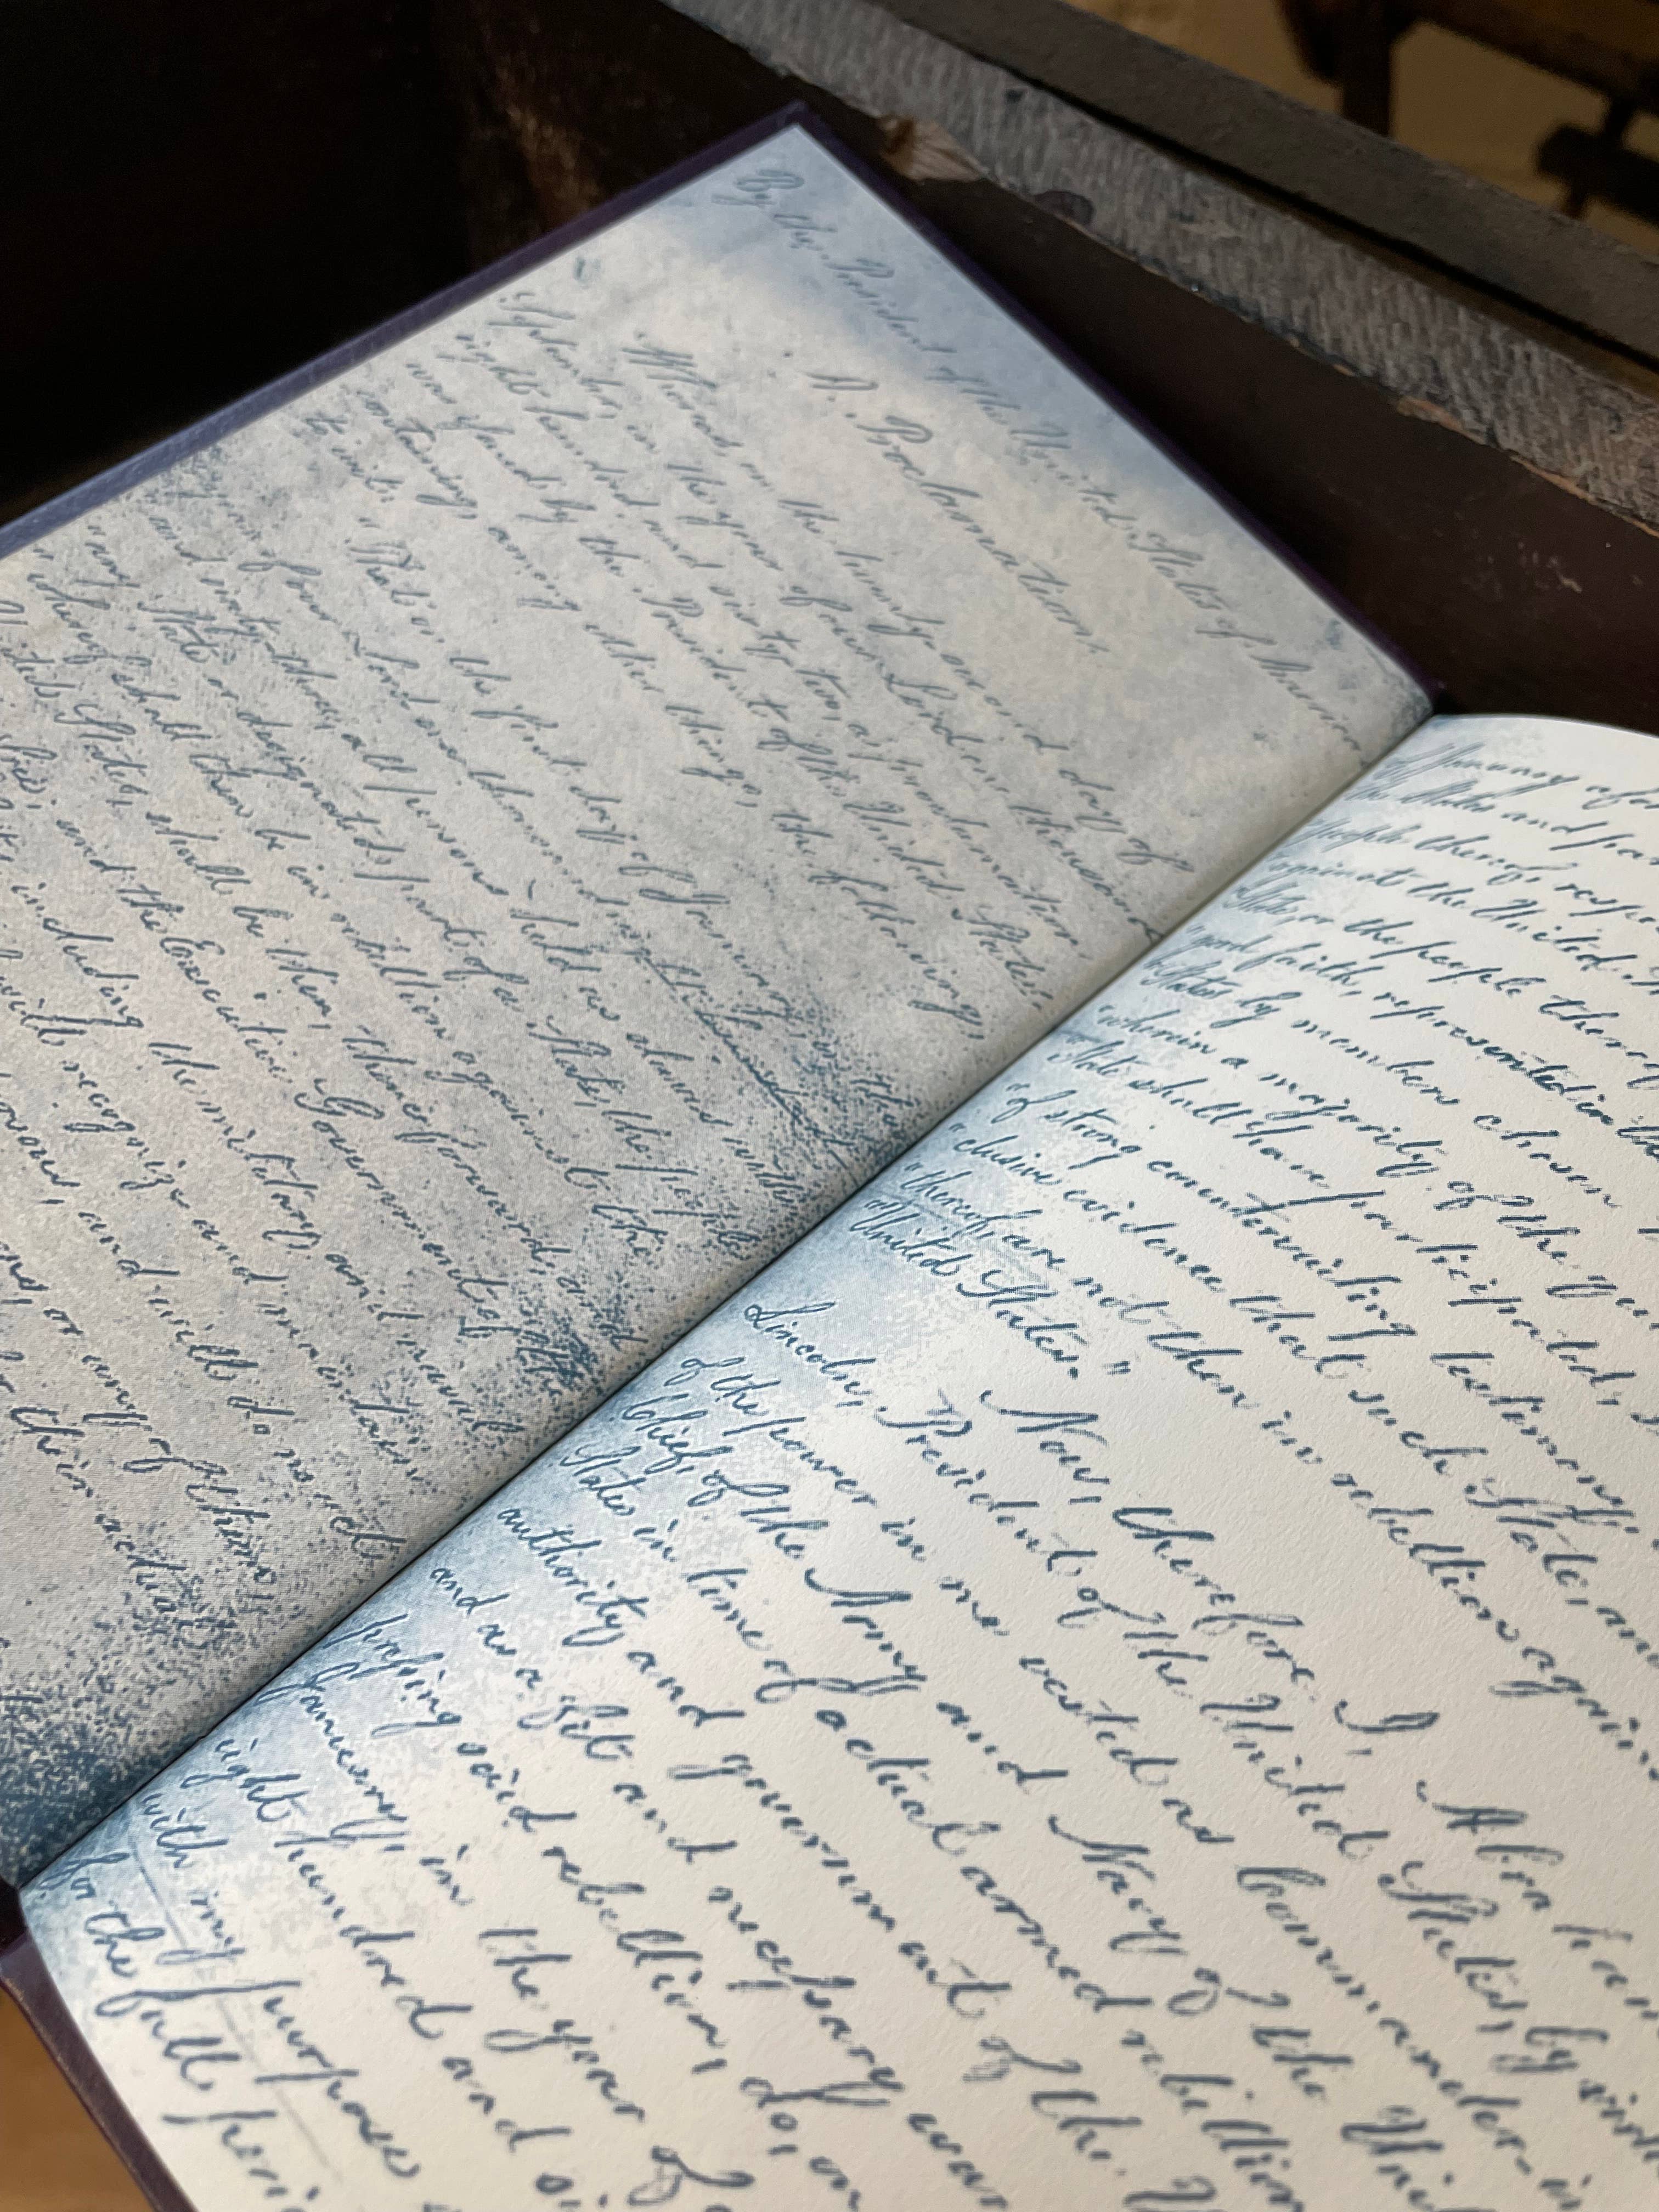 By the President of the United States of America
A Proclamation.
Whereas, on the twenty-second day of
September, in the year of our Lord one thousand
eight hundred and sixty two, a proclamation
was issued by the President of the United States,
containing, among other things, the following,
to wit:
"That on the first day of January, in the
year of our Lord one thousand eight hundred
and sixty-three, all persons held as slaves within
any State or designated part of a State, the people
whereof shall then be in rebellion against the
United States, shall be then, thenceforward, and
free; and the Executive Government of the
including the military and naval
will recognize and maintain
persons, and will do no act
or any of them
for their actual
January afor
the States and par
people thereof, respe
against the United
State, or the people thereof
"good faith, represented in the
"States by members chosen
"wherein a majority of the qu
State shall have participated, s
"of strong countervailing testimony,
"clusive evidence that such State, and
"thereof, are not then in rebellion agains
"United States."
Now, therefore I, Abraham
Lincoln, President of the United States, by virt
of the power in me vested as Commander-in
Chief, of the Army and Navy of the Unit
States in time of actual armed rebellion
authority and government of the
and as a fit and necessary war
pressing said rebellion, do, on
January, in the year of
eight hundred and si
with my purpose
for the full peri